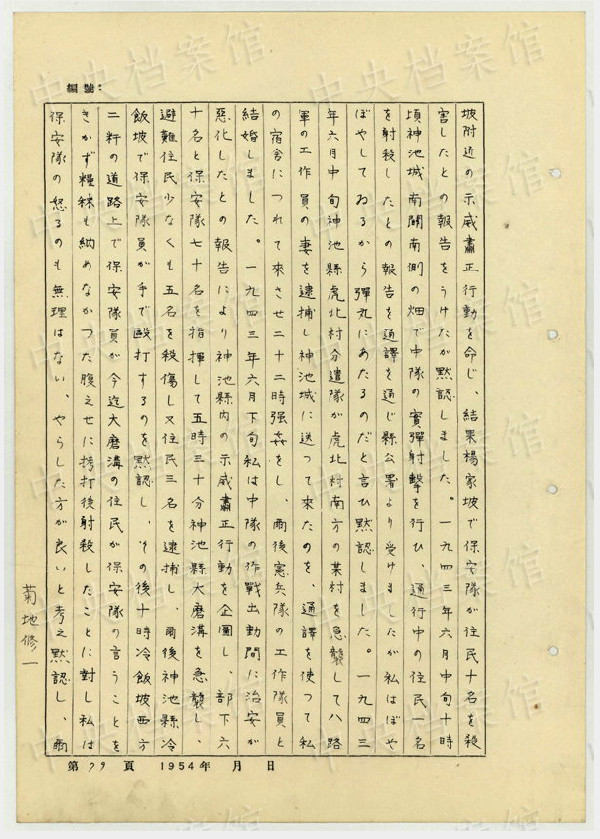 編號：
坡附近の示威肅正行動を命じ、結果楊家坡で保安隊が住民十名を殺
害したとの報告をうけたが黙認しました。一九四三年六月中旬十時
頃神池城南關南側の畑で中隊の實彈射擊を行ひ、通行中の住民一名
を射殺したとの報告を通譯を通じ縣公署より受けましたが私はぼや
ぼやしてゐるから彈丸にあたるのだと言ひ黙認しました。一九四三
年六月中旬神池縣虎北村分遣隊が虎北村南方の某村を急襲して八路
軍の工作員の妻を逮捕し神池城に送つて來たのを、通譯を使つて私
の宿舍につれて來させ二十二時强姦をし、爾後憲兵隊の工作隊員と
結婚しました。一九四三年六月下旬私は中隊の作戰出動間に治安が
惡化したとの報告により神池縣内の示威肅正行動を企圖し、部下六
十名と保安隊七十名を指揮して五時三十分神池縣大磨溝を急襲し、
避難住民少なくも五名を殺傷し又住民三名を逮捕し、爾後神池縣冷
飯坡で保安隊員が手で毆打するのを黙認し、その後十時冷飯坡西方
二粁の道路上で保安隊員が今迄大磨溝の住民が保安隊の言うことを
きかず糧秣も納めなかつた腹えせに拷打後射殺したことに對し私は
保安隊の怒るのも無理はない、やらした方が良いと考え黙認し、爾
菊地修一
第79頁 1954年 月 日
中央档案馆